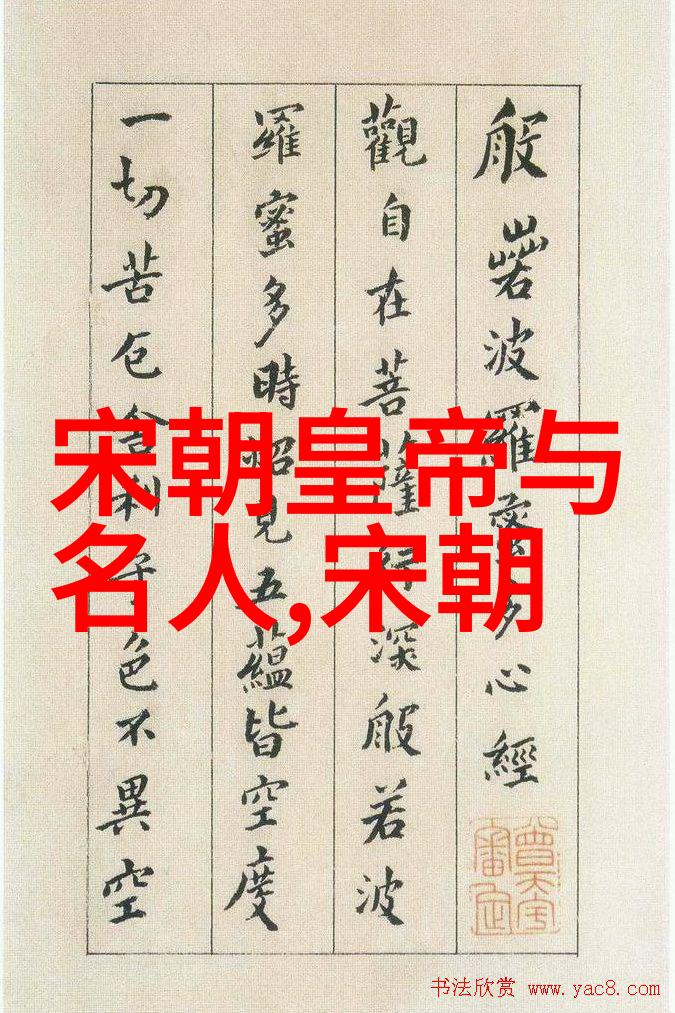 般若波羅蜜多心經
觀自在菩薩行深般若波
羅蜜多時照見五蘊皆空度
一切苦厄舍利子色不異空
宋朝皇帝与
名人,宋朝
书法欣赏 www.yac8.com